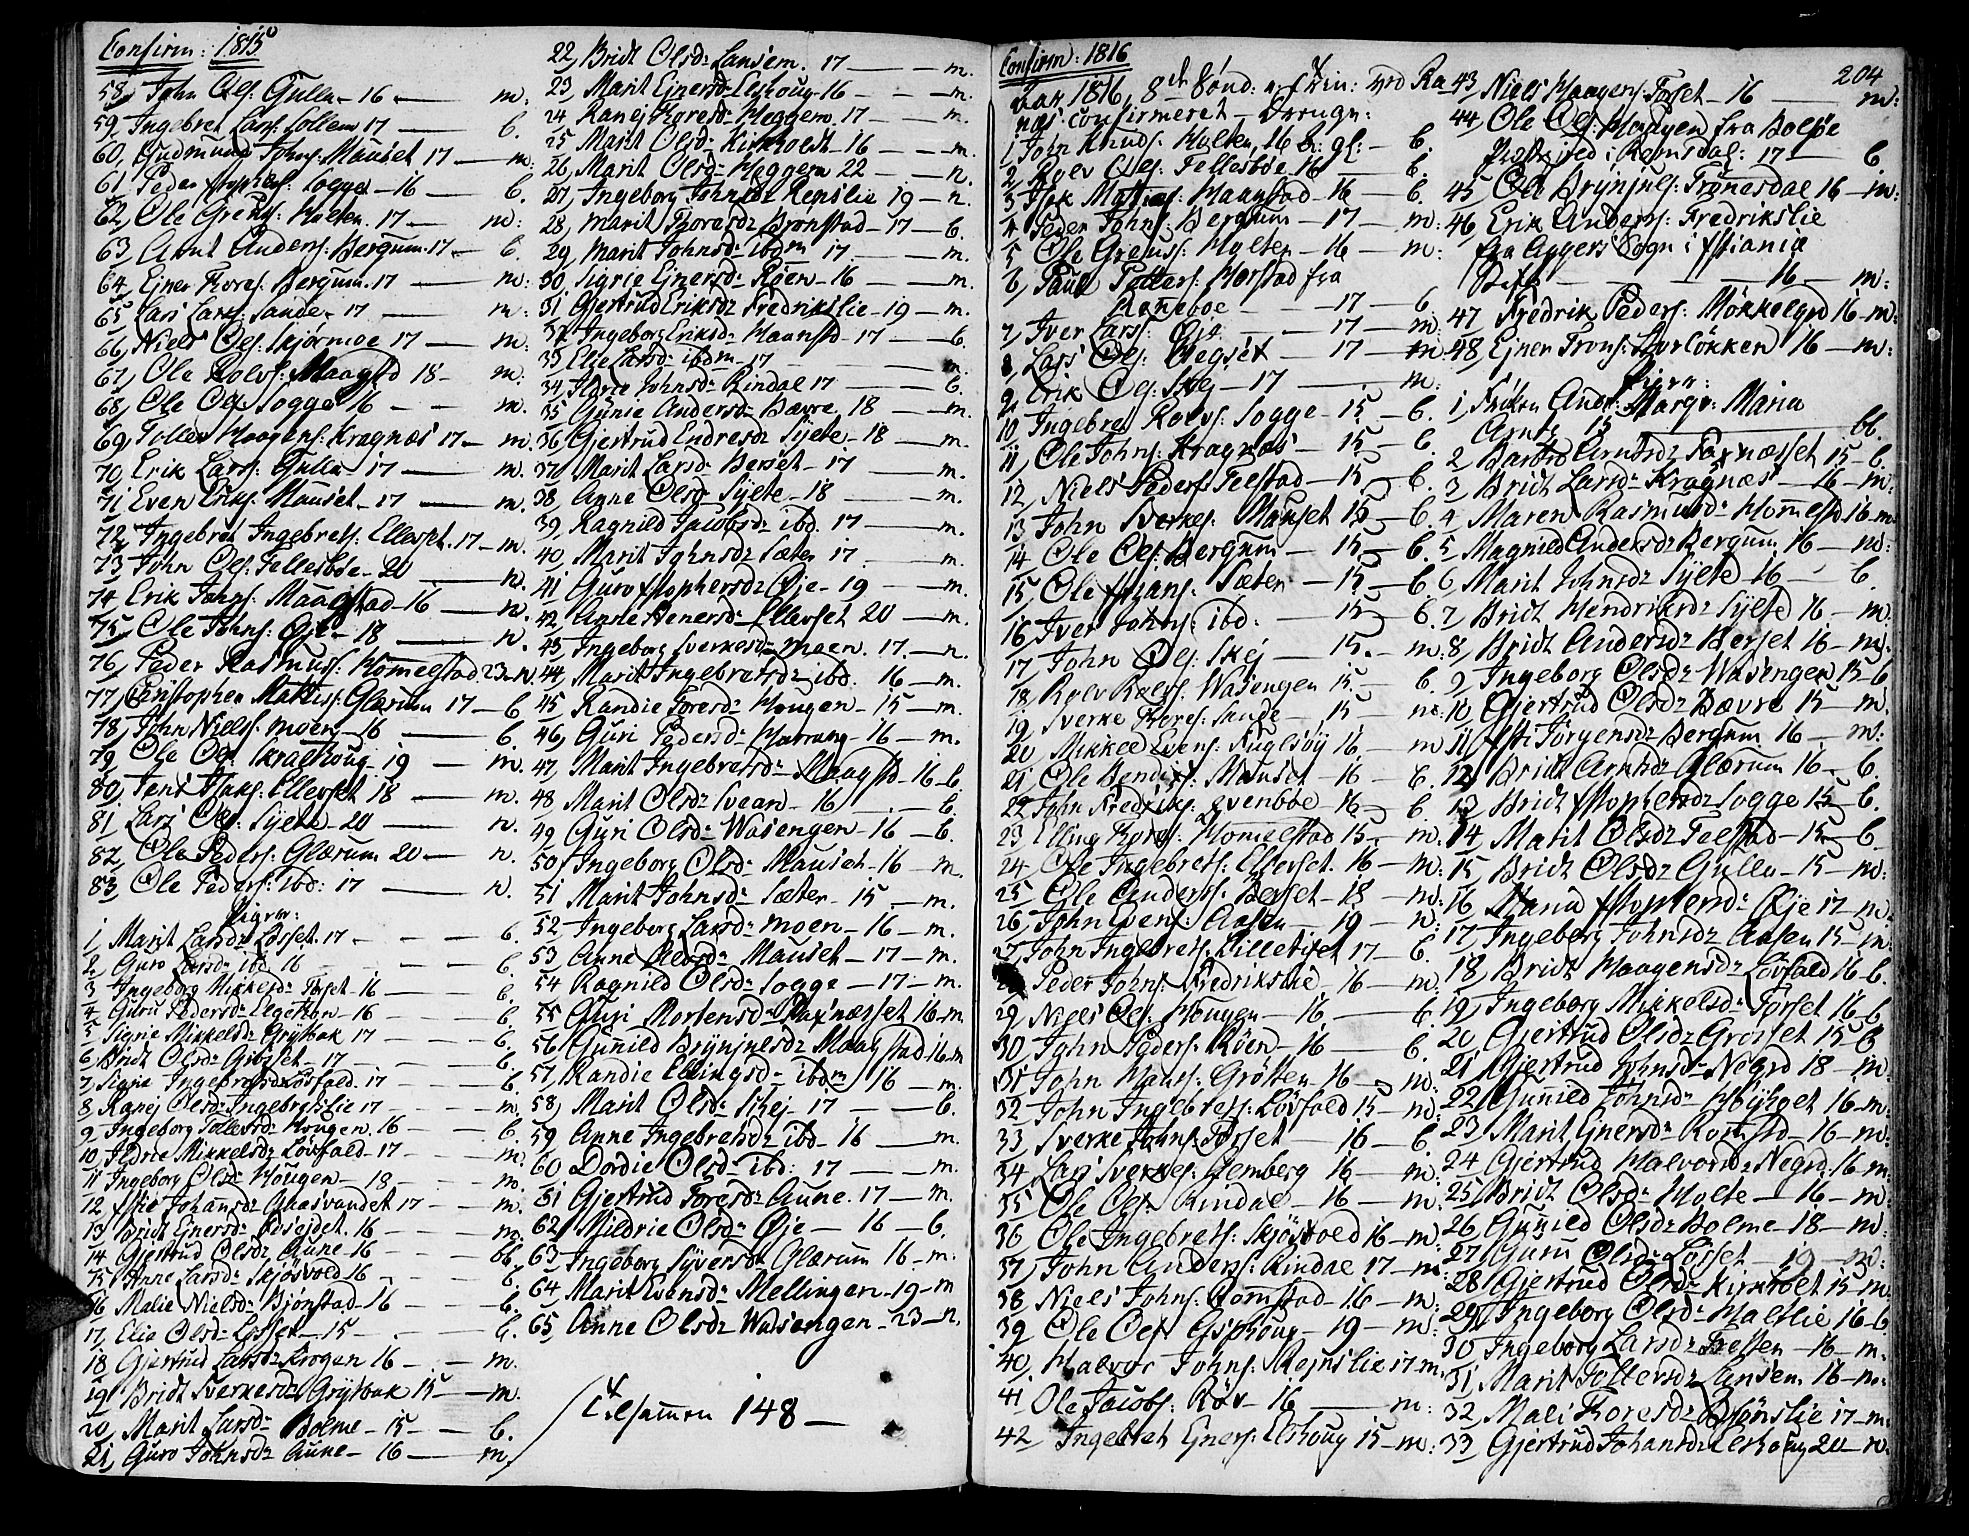 Confirm: 1815
58, John Ols: Gulla - 16 - m.
59, Ingebret Lars: Sollem 17 - b.
60, Gudmund Johns: Mauset 17 - m:
61, Peder Stophers: Sogge - 16 - b.
62, Ole Grens: Holten. 17 - m:
63, Arnt Anders: Bergum. 17 - b.
64, Ejner Tores: Bergum. 17 - m:
65, Lars Lars: Sande - 17 - m:
66, Niels Ols: Skjørmoe 17 - m:
67, Ole Rolvs: Maagstd 18 - m:
68, Ole Ols: Sogge 16 - m.
69, Tollev Haagens: Kragnæs 17 - m.
70, Erik Lars: Gulla 17 - m.
71, Even Eriks: Mauset - 17 - m.
72, Ingebret Ingebrets: Ellevset. 17 - m.
73, John Ols: Fellesbøe - 20 - n.
74, Erik Johns: Maagstad - 16 - n.
75, Ole Johns: Øje - 18 - n.
76, Peder Rasmus: Homelstad 23 - n
77, Christopher Mattis: Glærum 17 - b
78, John Niels: Moen - 16 - b.
79, Ole Ols: Skralhoug - 19 - m.
80, Jens Isaks: Ellevset 18 - m.
81, Lars Ols: Sylte - 20 - n.
82, Ole Peders: Glærum 20 - n.
83, Ole Peders: ibd: 17 - n.
Piger:
1, Marit Larsd: Løsset. 17 - b.
2, Guro Larsd: ibd 16 - b.
3, Ingeborg Mikkelsd: Torset - 16 - b.
4, Guru Pedersd: Elgesten - 16 - b.
5, Sigrie Mikkelsd: Grytbak 17 - b.
6, Bridt Olsd: Grøsset - 17 - b.
7, Signe Ingebretsd: Løsfald. 17 - b
8, Ranej Olsd: Ingebretslie 17 - m.
9, Ingeborg Tollevsd: Hougen. 16 - b.
10, Sidrie Mikkelsd: Løvfald - 17 - m.
11, Ingeborg Olsd: Hougen - 18 - m.
12, Stie Johansd: Gaasvandet 17 - m.
13, Bridt Ejnersd: Bosejdet. 16 - m.
14, Gjertrud Olsd: Aune - 16 - bb.
15, Anne Larsd: Skjøsvold 16 - b.
16, Malie Nielsd: Bjønstad - 16 - b.
17, Elie Olsd: Løsset - 15 - b.
18, Gjertrud Larsd: Krogen 16 - m.
19, Bridt Sverkesd: Grytbak 15 - m.
20, Marit Larsd: Bolme - 15 - b.
21, Guro Johnsd: Aune - 16 - m.
22, Bridt Olsd: Lansem. 17 - m.
23, Marit Ejnersd: Elshoug - 16 - m.
24, Ranej Toresd: Heggem. 17 - m.
25, Marit Olsd: Kirkholdt - 16 - m.
26, Marit Olsd: Heggem 22 - n.
27, Ingeborg Johnsd: Renslie 19 - n.
28, Marit Toresd: Brønstad - 17 - b.
29, Marit Johnsd: ibdm 17 - m.
30, Sigrie Ejnersd: Røen - 16 - m.
31, Gjertrud Eriksd: Fredrikslie - 19 - m.
32, Ingeborg Eriksd: Haanstd - 17 - b.
33, Else Larsd: ibdm - 17 - m.
34, Sidrie Johnsd: Rindal 17 - b.
35, Gunie Andersd: Bævre. 18 - m.
36, Gjertrud Endresd: Sylte - 18 - m.
37, Marit Larsd: Berset - 17 - m.
38, Anne Olsd: Sylte - 18 - m.
39, Ragnild Jacobsd: ibd. 17 - m.
40, Marit Johnsd: Sæter 17 - m.
41, Guro Stophersd: Øje - 19 - m.
42, Anne Stenersd: Ellevset 20 - m.
43, Ingeborg Sverkesd: Moen. 17. - n.
44, Marit Ingebretsd: ibd. 16 - m.
45, Randie Toresd: Hougen - 15 - m.
46, Guri Pedersd: Harrang - 16 - m.
47, Marit Ingebretsd: Maagstd - 16 - b.
48, Marit Olsd: Svean - 16 - b.
49, Guri Olsd: Wasengen - 16 - b.
50, Ingeborg Olsd: Mauset. 16 - m.
51, Marit Johnsd: Sæter - 15 - m.
52, Ingeborg Larsd: Moen - 16 - m.
53, Anne Olsd: Mauset - 17 - m.
54, Ragnild Olsd: Sogge - 17 - m.
55, Guri Mortensd: Saxnæsset 16 - m.
56, Gunild Brynjulsd: Maagstad 16 - m
57, Randie Ellingsd: ibdm 16 - m.
58, Marit Olsd: Skej - 17 - b.
59, Anne Ingebretsd: ibd - 16 - m.
60, Dordie Olsd: ibd: 17 - m.
61, Gjertrud Toresd: Aune. 17 - m.
62, Mildrie Olsd: Øje - 16 - b.
63, Ingeborg Syversd: Glærum 16 - m.
64, Marit Evensd: Mellingen - 19 - m
65, Anne Olsd: Wasengen - 23 - n.
Tilsammen 148
Confirm: 1816
Aar 1816, 8de Sønd: e: Trin: ved Ra
næs confirmeret - Drenge:
1, John Knuds: Holten, 16 - b.
2, Rolv Ols: Fellesbøe 16 - b.
3, Isak Mathias: Maagstad 16 - b.
4, Peder Johns: Bergum - 17 - m:
5, Ole Grens: Holten - 16 - m:
6, Paul Petters: Horstad fra
17 - b
7, Iver Lars: Øje - 17 - m:
8, Lars Ols: Aegset - 17 - m
9, Erik Ols: Skej - 17 - m.
10, Ingebret Rolvs: Sogge - 15 - b.
11, Ole Johns: Kragnæs - 15 - b.
12, Niels Peders: Telstad - 15 - b.
13, John Sverkes: Mauset 15 - b.
14, Ole Ols: Bergum - 15 - b.
15, Ole Sæter - 15 - b
16, Iver Johns: ibd: - 15 - b.
17, John Ols: Skej - 15. - m:
18, Rolv Rolvs: Wasengen 15. - b.
19, Sverke Tores: Sande - 15 - m:
20, Mikkel Evens: Fuglsøy 16 - m
21, Ole Bendix: Mauset - 16 - b.
22, John Fredriks: Evenbøe 16 - b.
23, Elling Tores: Homelstad 15. - m:
24, Ole Ingebrets: Ellevset. 16 - m:
25, Ole Anders: Berset - 18 - m:
26, John Evens: Aasen - 19 - n:
27, John Ingebrets: Lilletisset 17 - b.
Peder Johns: Fredrikslie - 16 - m.
29, Niels Ols: Hougen - 16 - b.
30, John Peders: Røen - 16 - b.
31, John Hans: Grøtten - 16 - m:
32, John Ingebrets: Løvfald 15 - m:
33, Sverke Johns: Torset 16 - b
34, Lars Sverkes: Hemberg 16 - m:
35, Ole Ols: Rindal - 16 - m:
36, Ole Ingebrets: Skjøsvold 16 - m:
37, John Anders: Rindal 17 - m:
38, Niels Johns: Romstad - 16 - m:
39, Ole Ols: Gjsphoug - 19 - m:
40, Halvor Johns: Rejnslie 17 m.
41, Ole Jacobs: Røv - 16 - m:
42, Ingebret Ejners: Elshoug 15 - m:
204
43, Niels Haagens: Torset - 16 - m:
44, Ole Ols: Hoagen fra Bolsøe
Præstegield i Romsdal: 17 - b.
45, Ole Brynjuls: Trønesdal 16 - m:
46, Erik Anders: Fredrikslie
fra Aggers Sogn i Xtiania
Stift - 16 - m:
47, Fredrik Peders: Møkkelgrd 16 - m:
48, Ejner Trons: Løvløkken 16 - m:
Piger:
1, Frøken Margr: Maria
Arntz 15 - bb.
2, Barbro Arntsd: Saxnæsset 15 - b.
3, Bridt Larsd: Kragnæs - 16 - m:
4, Maren Rasmusd: Homelstd 16 - m.
5, Magnild Andersd: Bergum 16 - m:
6, Marit Johnsd: Sylte - 16 - b.
7, Bridt Hendriksd: Sylte 16 - m:
8, Bridt Andersd: Berset 16 - m:
9, Ingeborg Olsd: Wasengen 15 - b
10, Gjertrud Olsd: Bævre 15 - m.
11, Stie Jørgensd: Bergum 16 - m:
12, Bridt Arntsd: Glærum 16 - b.
13, Bridt Stophersd: Sogge 15 - b.
14, Marit Olsd: Telstad - 15 - b.
15, Bridt Olsd: Gulla - 15 - m:
16, Maria Stophersd: Øje 17 - m:
17, Ingeborg Johnsd: Aasen 15 - m:
18, Bridt Haagensd: Løvfald 16 - b.
19, Ingeborg Mikkelsd: Torset 16 - b
20, Gjertrud Olsd: Grøsset 15 - b
21, Gjertrud Johnsd: Negrd 18 - m:
22, Gunild Johnsd: 16 - m:
23, Marit Ejnersd: Romstd - 16 - m:
24, Gjertrud Halvorsd: Negrd. 16 - m:
25, Bridt Olsd: Holte - 16 - m:
26, Gunild Olsd: Bolme - 18 - m:
27, Guru Olsd: Løsset - 19 - m:
28, Gjertrud Olsd: Kirkholt 15 - m:
29, Ingeborg Olsd: Haltlie 16 - b
30, Ingeborg Larsd: Tretten - 16 - m.
31, Marit Tollevsd: Lansem. 16 - m.
32, Mali Toresd: Bjønslie 17 - m:
33, Gjertrud Johansd: Elshoug 20 - n.